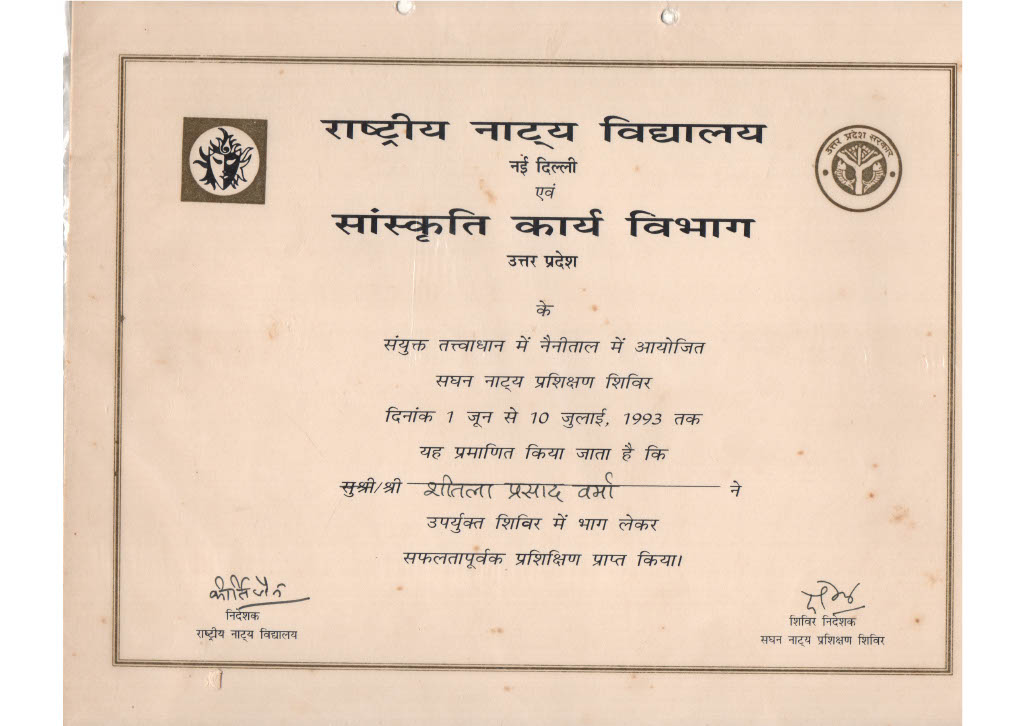 राष्ट्रीय नाट्य विद्यालय
नई दिल्ली
एवं
सांस्कृति कार्य विभाग
उत्तर प्रदेश
उत्तर प्रदेश सरकार
के
संयुक्त तत्त्वाधान में नैनीताल में आयोजित
सघन नाट्य प्रशिक्षण शिविर
दिनांक 1 जून से 10 जुलाई, 1993 तक
यह प्रमाणित किया जाता है कि
सुश्री/श्री शीतला प्रसाद वर्मा ने
उपर्युक्त शिविर में भाग लेकर
सफलतापूर्वक प्रशिक्षिण प्राप्त किया।
कीर्ति जैन
निर्देशक
राष्ट्रीय नाट्य विद्यालय
शिविर निर्देशक
सघन नाट्य प्रशिक्षण शिविर